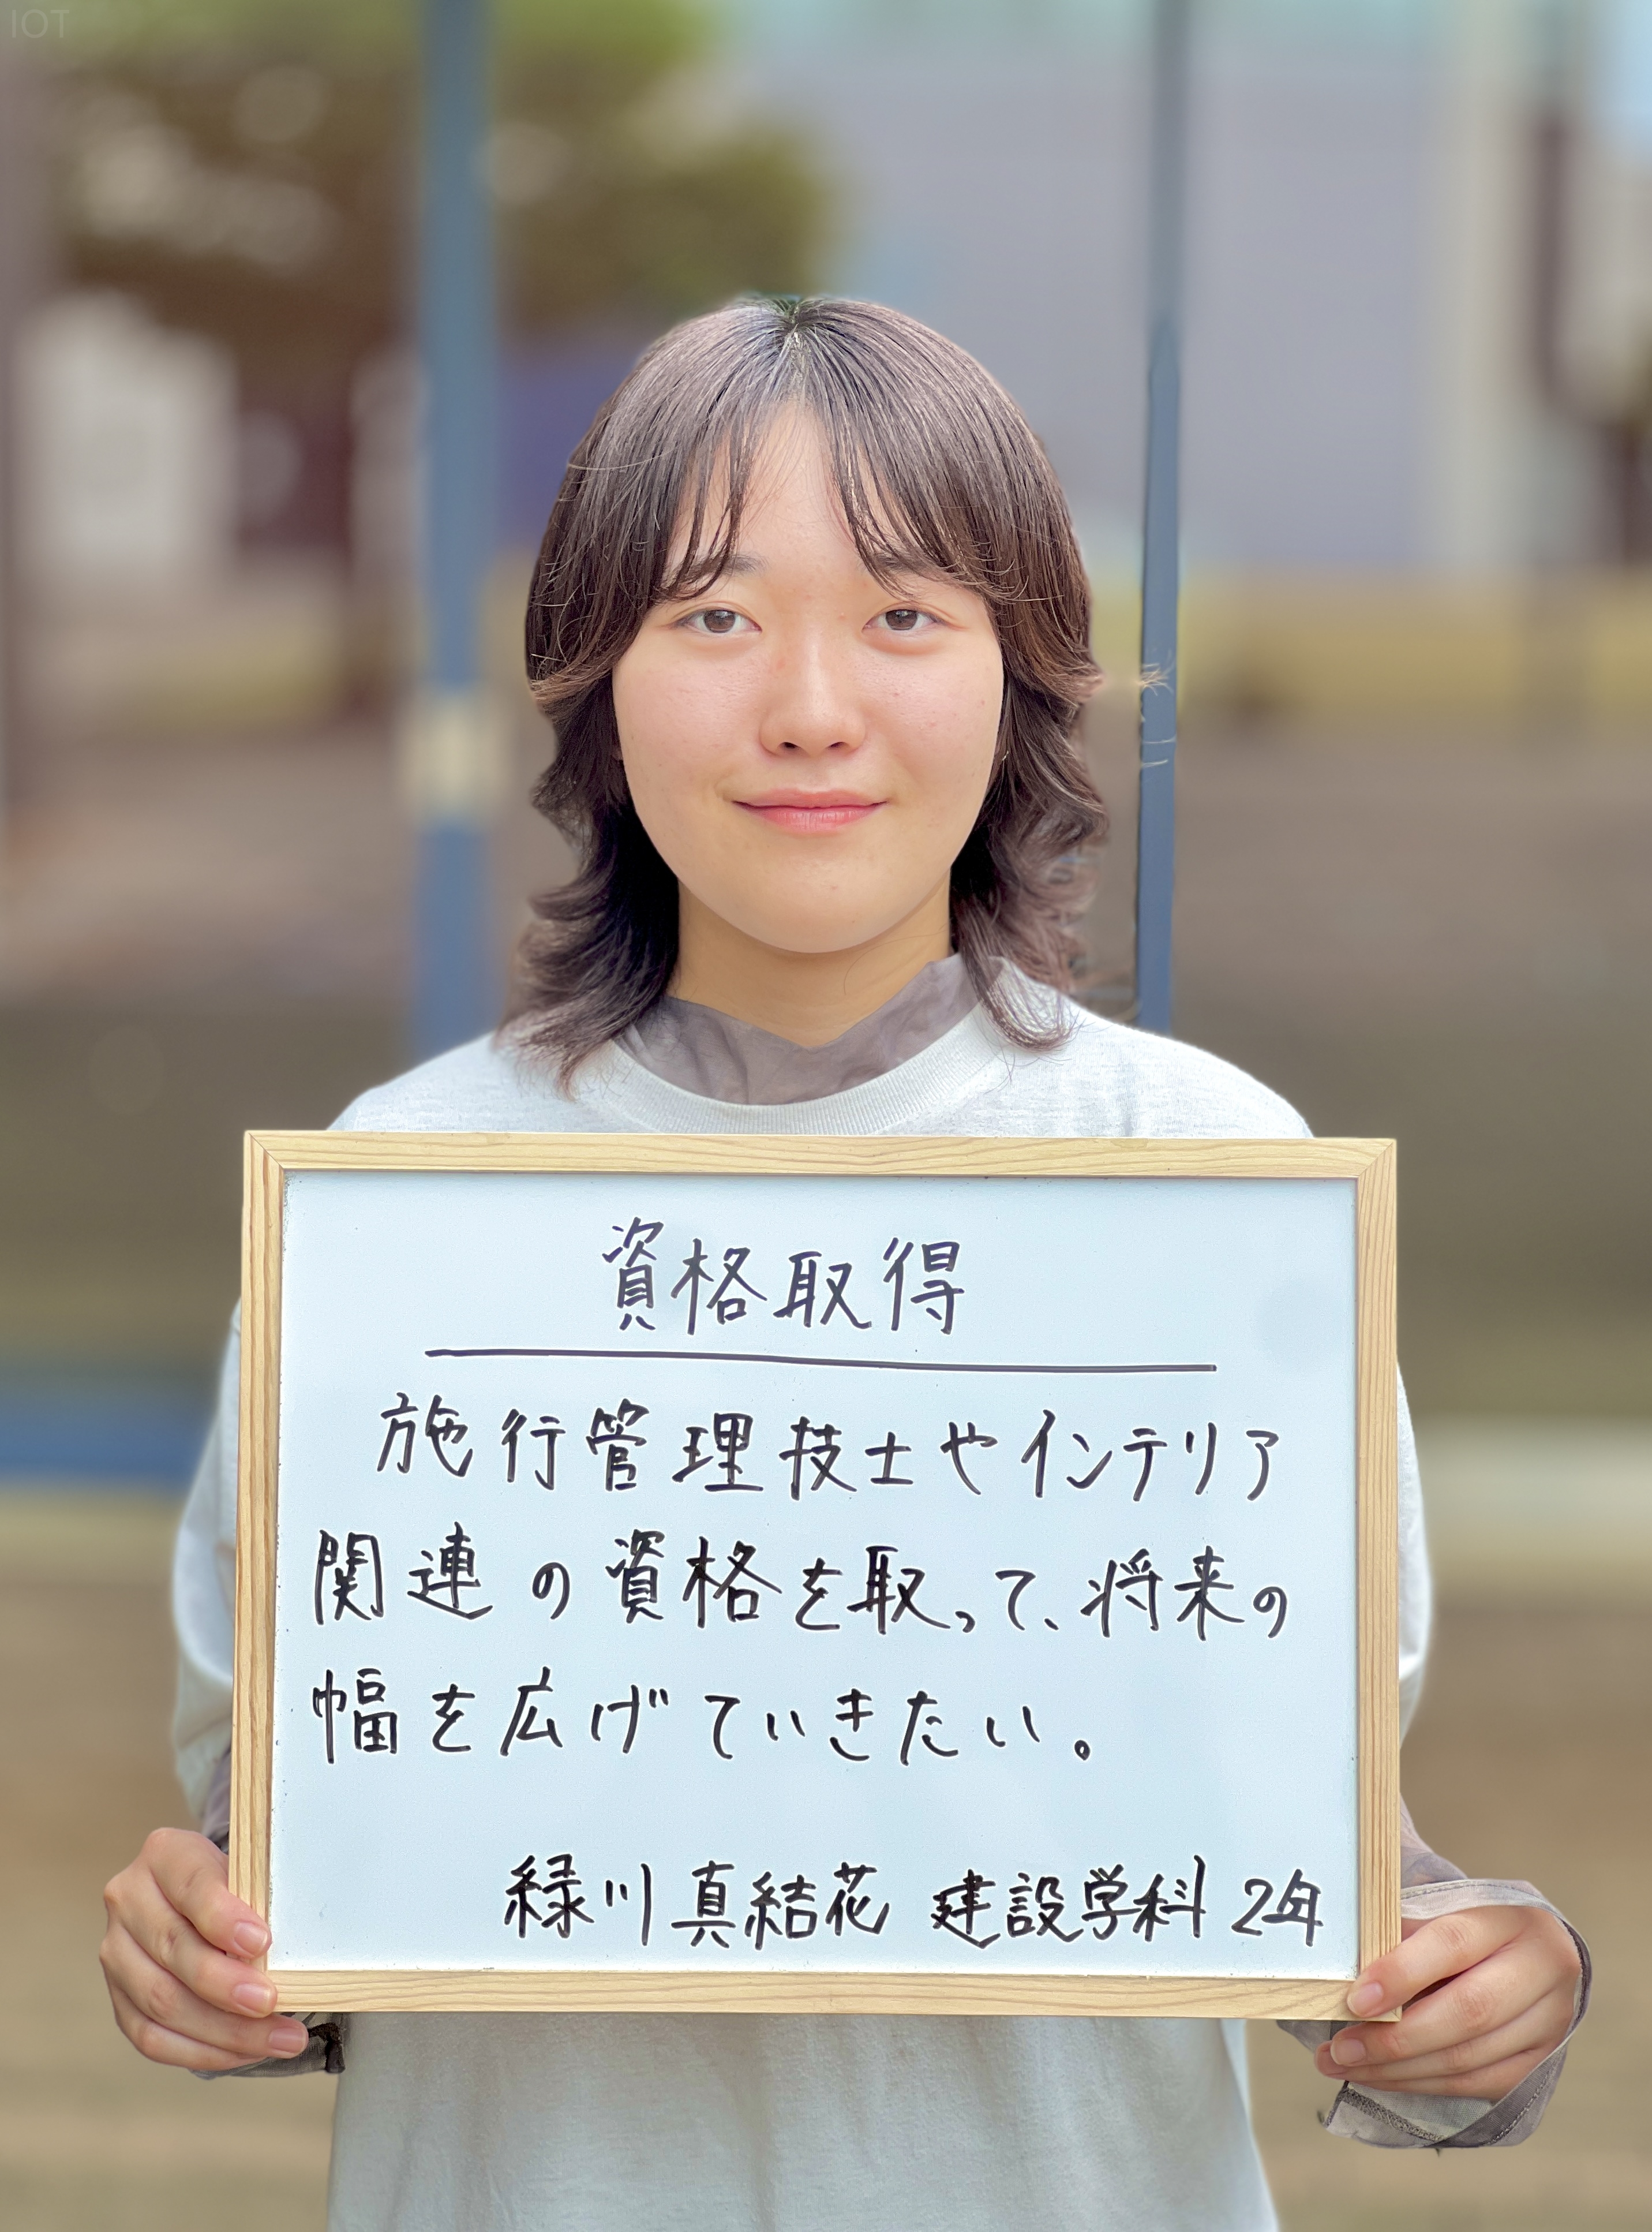 IOT
資格取得
施行管理技士やインテリア
関連の資格を取って、将来の
幅を広げていきたい。
緑川真結花 建設学科 2年